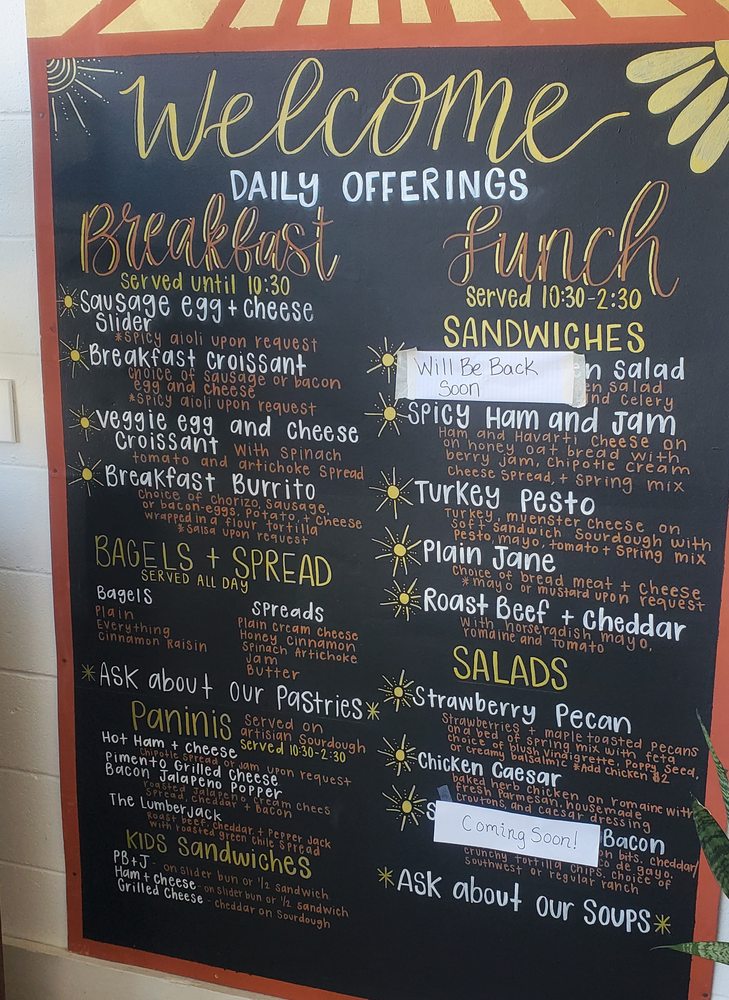 Welcome
DAILY OFFERINGS
Breakfast
served until 10:30
Sausage egg + cheese
Slider
*spicy aioli upon request
Breakfast croissant
choice of sausage or bacon
egg and cheese
*spicy aioli upon request
veggie egg and cheese
Croissant with spinach
tomato and artichoke spread
Breakfast Burrito
choice of chorizo, sausage,
or bacon-eggs, potato, + cheese
wrapped in a flour tortilla
*salsa upon request
BAGELS + SPREAD
SERVED ALL DAY
Bagels
Plain
Everything
cinnamon raisin
spreads
Plain cream cheese
Honey cinnamon
Spinach Artichoke
Jam
Butter
*Ask about our Pastries*
Paninis served on
artisian sourdough
served 10:30-2:30
Hot Ham + cheese
chipotle spread or jam upon request
Pimento Grilled Cheese
Bacon Jalapeno Popper
roasted jalapeno, cream chees
spread, cheddar + bacon
The Lumberjack
Roast beef, cheddar, + pepper jack
with roasted green chile spread
KIDS Sandwiches
PB+J - on slider bun or 1/2 sandwich
Ham + cheese - on slider bun or 1/2 sandwich
Grilled Cheese - cheddar on sourdough
Lunch
Served 10:30-2:30
SANDWICHES
Will Be Back
Soon
en salad
en salad
and celery
Spicy Ham and Jam
Ham and Havarti cheese on
on honey oat bread with
berry jam, chipotle cream
cheese spread, + spring mix
Turkey Pesto
Turkey, muenster cheese on
soft sandwich sourdough with
pesto, mayo, tomato + spring mix
Plain Jane
choice of bread meat + cheese
*mayo or mustard upon request
Roast Beef + cheddar
with horseradish mayo,
romaine and tomato
SALADS
Strawberry Pecan
Strawberries + maple toasted pecans
on a bed of spring mix with feta
choice of blush vinaigrette, Poppy Seed,
or creamy balsalmic *Add chicken $2
Chicken Caesar
baked herb chicken on romaine with
fresh parmesan, housemade
croutons, and caesar dressing
S
Coming Soon!
Bacon
on bits, cheddar/
co de gayo,
crunchy tortilla chips. choice of
southwest or regular ranch
*Ask about our Soups*